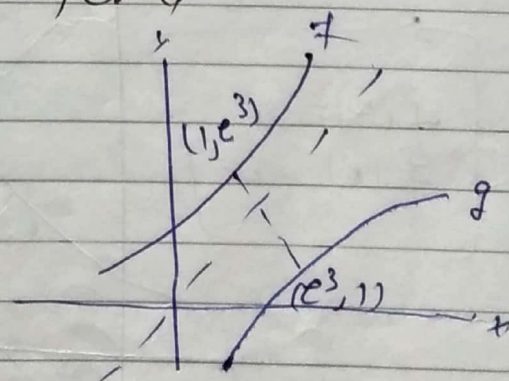 y
f
(1, e³)
g
(e³, 1)
x